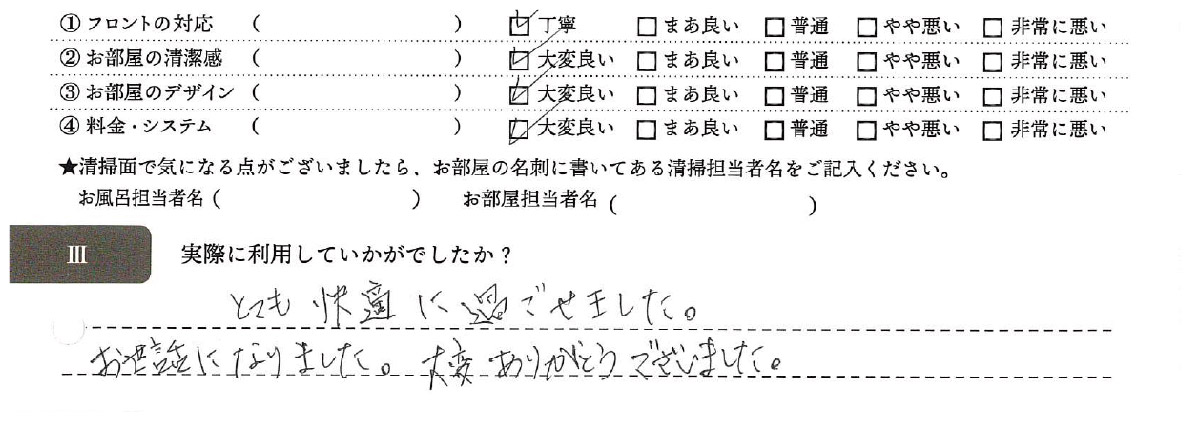 ① フロントの対応 ( ) ☑ 丁寧 □ まあ良い □ 普通 □ やや悪い □ 非常に悪い
② お部屋の清潔感 ( ) ☑ 大変良い □ まあ良い □ 普通 □ やや悪い □ 非常に悪い
③ お部屋のデザイン ( ) ☑ 大変良い □ まあ良い □ 普通 □ やや悪い □ 非常に悪い
④ 料金・システム ( ) ☑ 大変良い □ まあ良い □ 普通 □ やや悪い □ 非常に悪い
★清掃面で気になる点がございましたら、お部屋の名刺に書いてある清掃担当者名をご記入ください。
お風呂担当者名 ( ) お部屋担当者名 ( )
Ⅲ 実際に利用していかがでしたか?
とても快適に過ごせました。
お世話になりました。大変ありがとうございました。